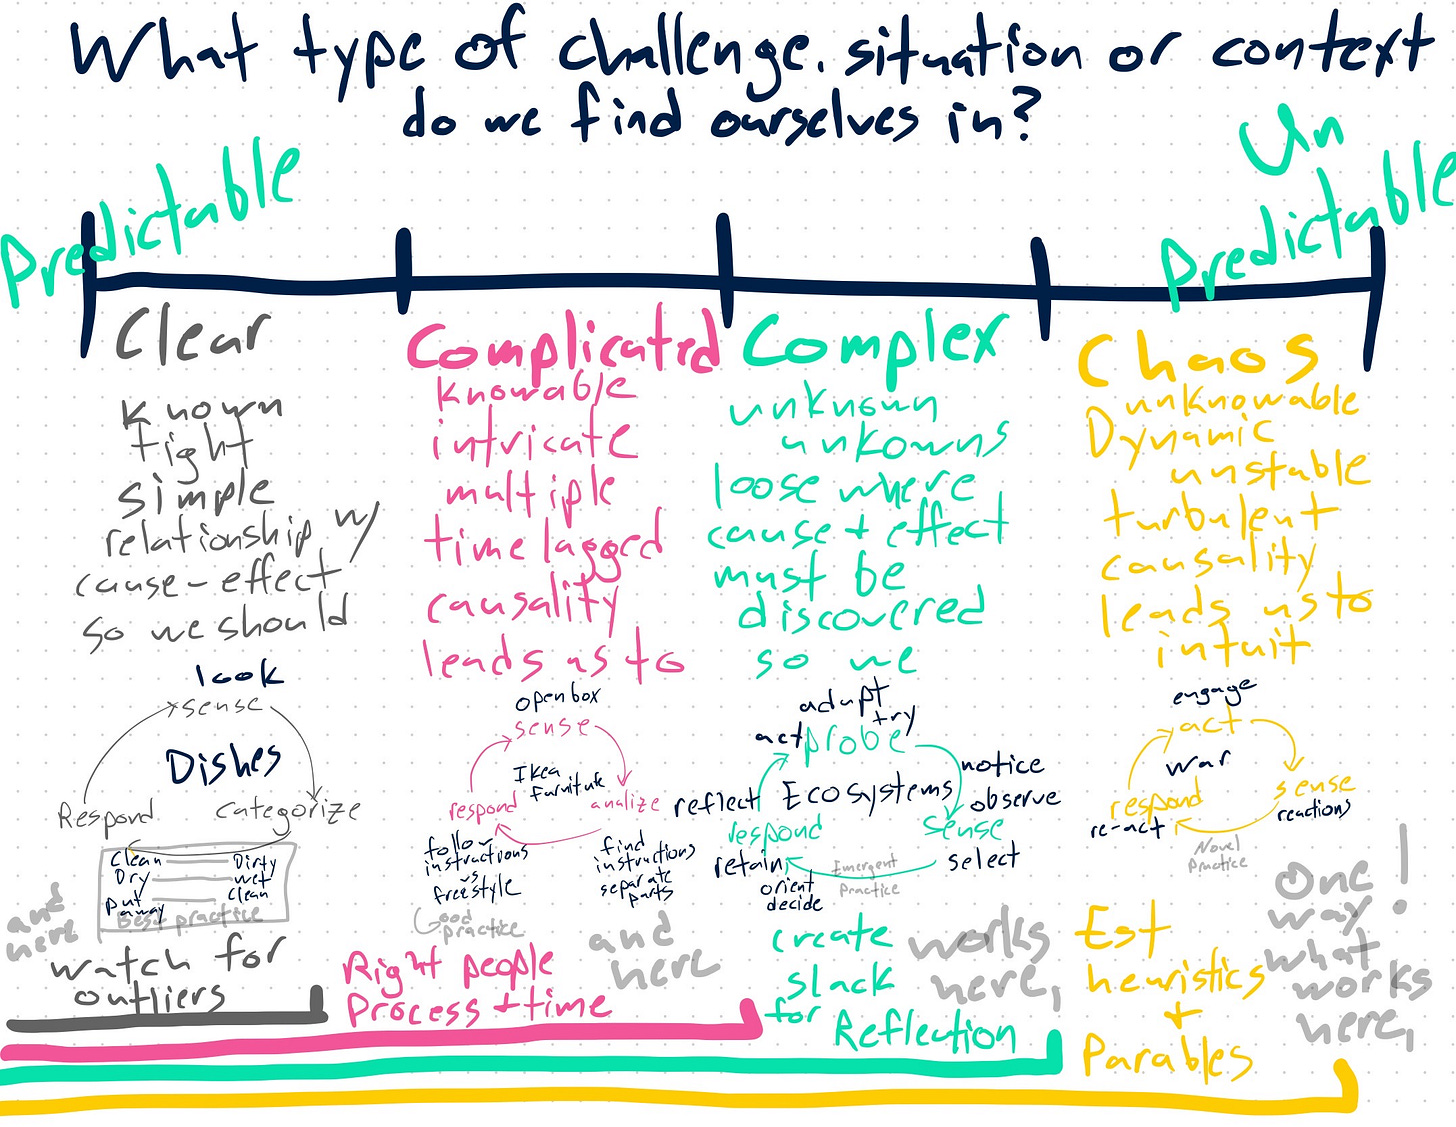 What type of challenge. situation or context
do we find ourselves in?
Predictable
Un
Predictable
Clear
Known
tight
simple
relationship w/
cause-effect
so we should
look
sense
Dishes
Respond
categorize
Clean Dirty
Dry wet
Put away clean
Best practice
and
here
watch for
outliers
Complicated
Knowable
intricate
multiple
time lagged
causality
leads us to
open box
sense
Ikea
furniture
respond
analize
follow
instructions
vs
freestyle
find
instructions
separate
parts
Good
practice
and
here
Right people
Process + time
Complex
unknown
unkowns
loose where
cause + effect
must be
discovered
so we
adapt
try
act probe
notice
Ecosystems
observe
reflect
respond
sense
retain
select
orient
decide
Emergent
Practice
create
slack
for Reflection
works
here,
Chaos
unknowable
Dynamic
unstable
turbulent
causality
leads us to
intuit
engage
act
war
respond
re-act
sense
reactions
Novel
Practice
Est
heuristics
+
Parables
One
way!
what
works
here,